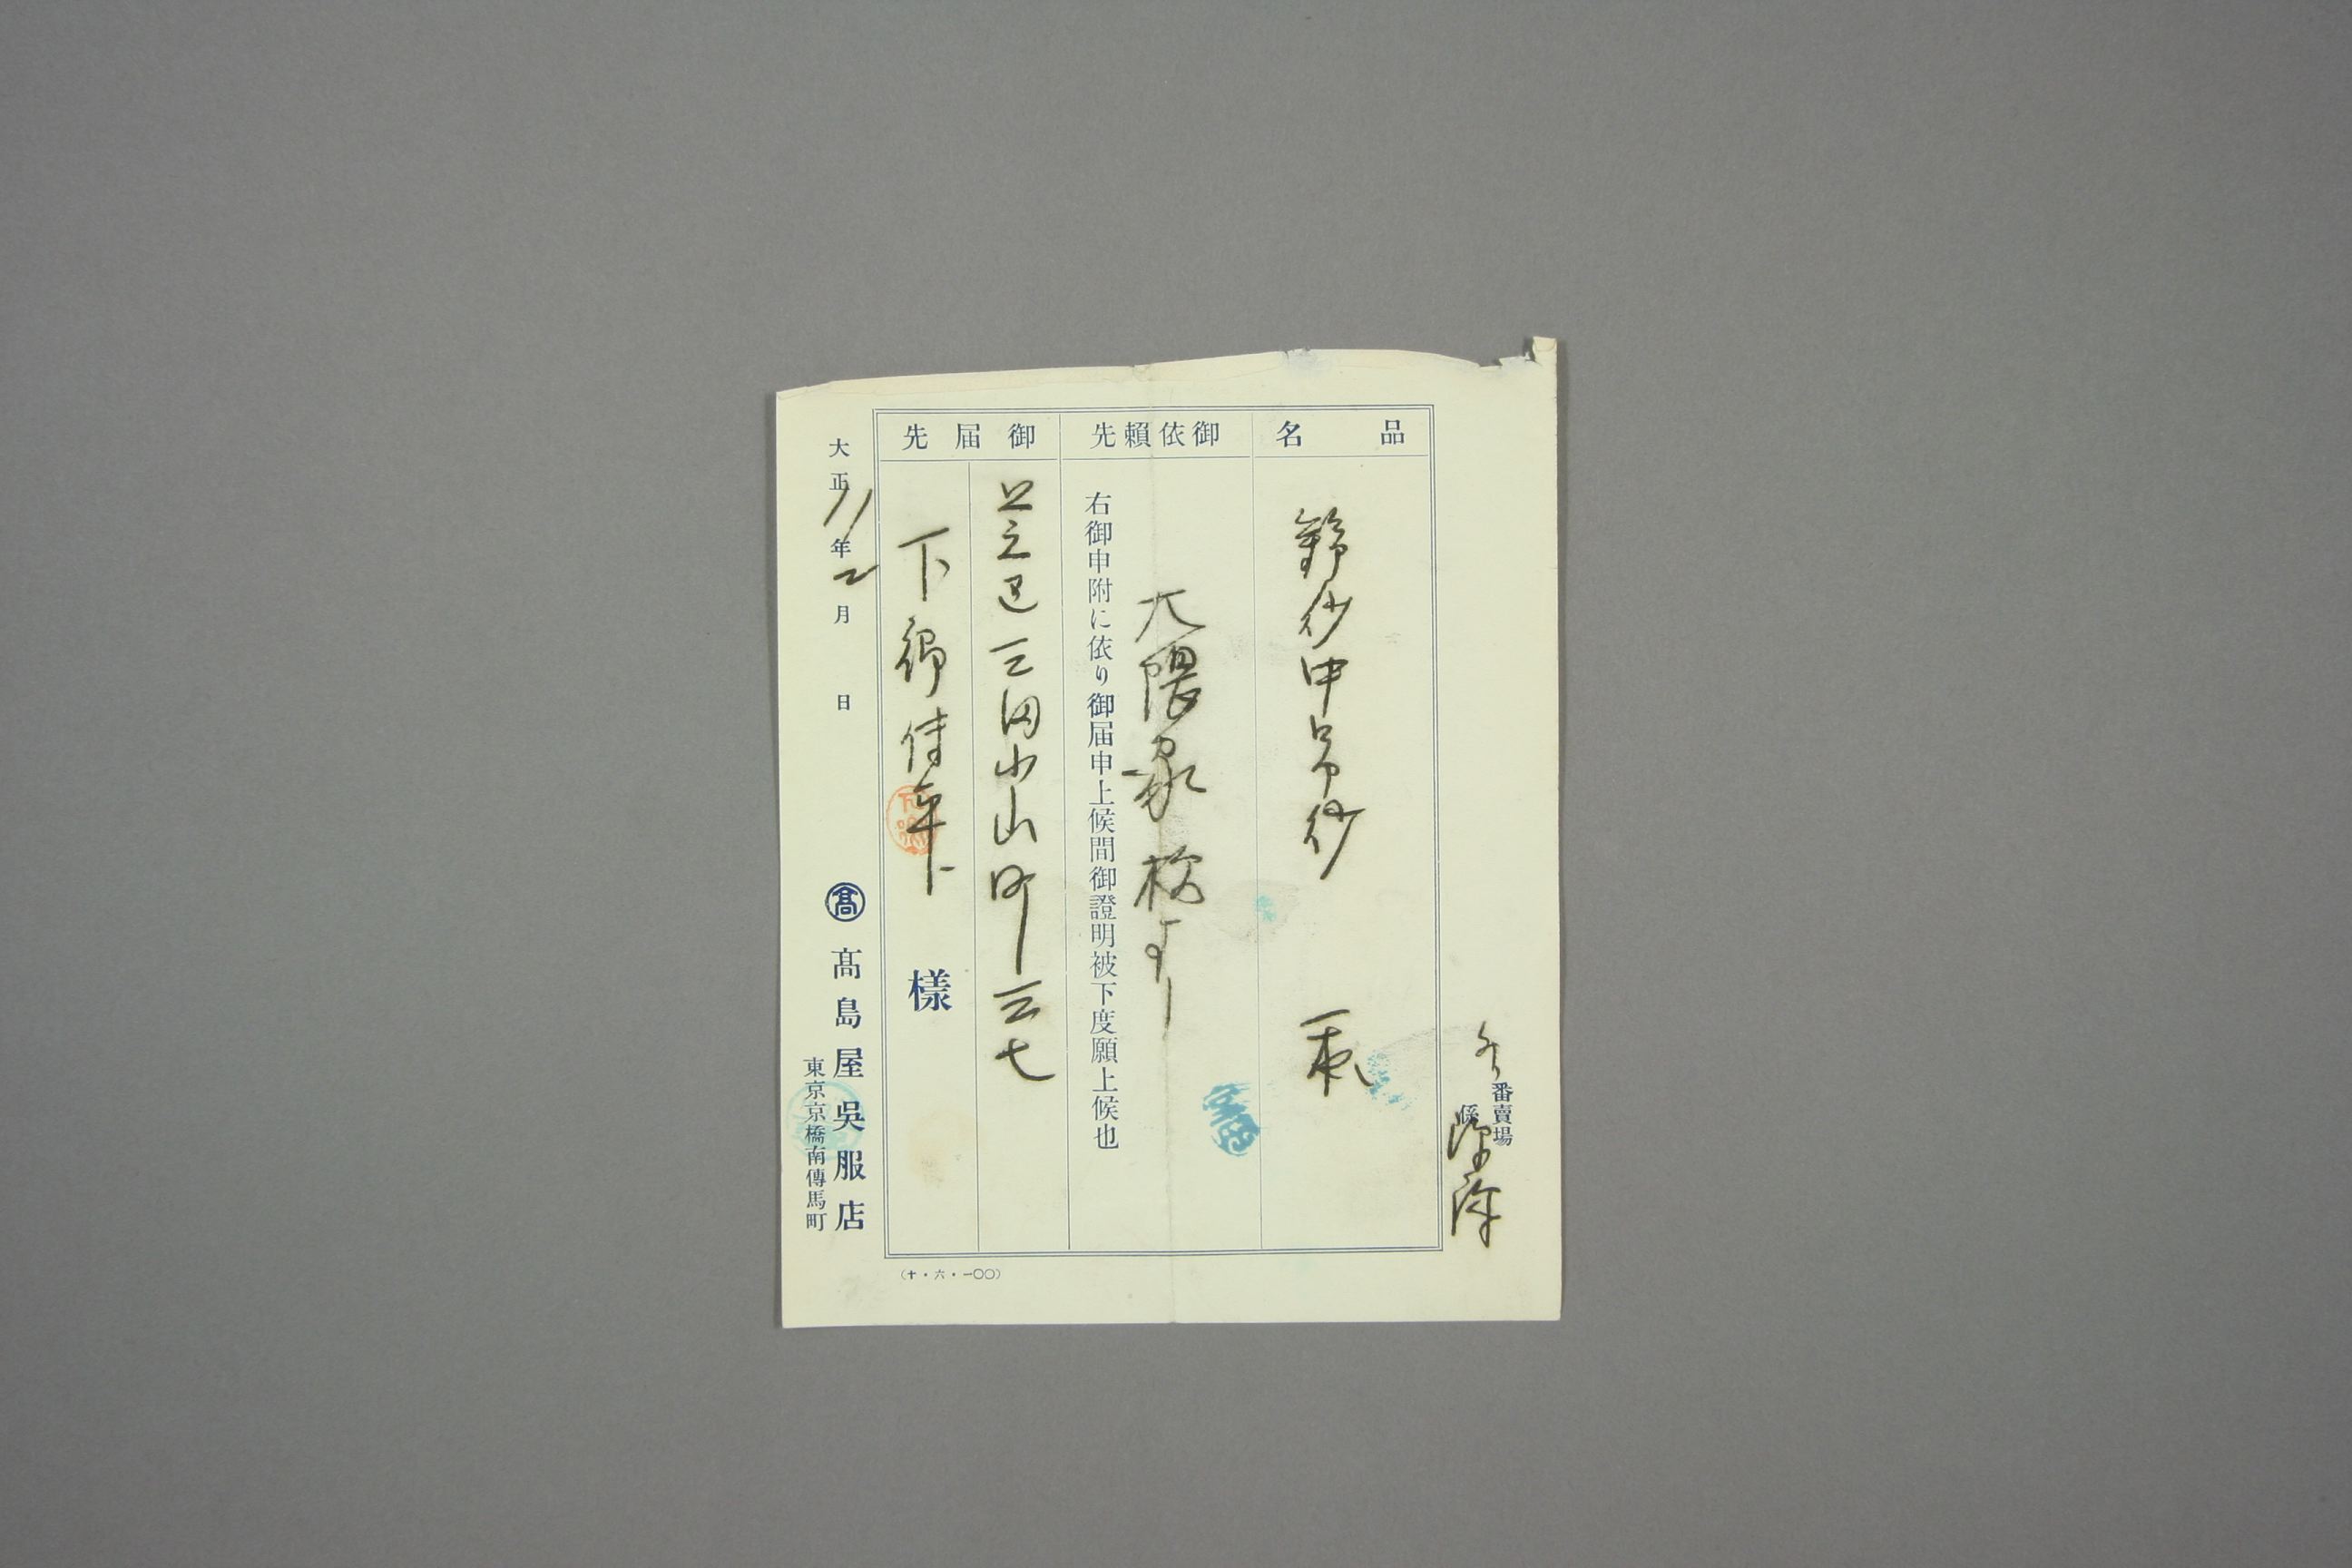 番賣場
係
品名
一本
御依賴先
大隈家様より
右御申附に依り御届申上候間御證明被下度願上候也
御届先
芝区三田小山町三七
下郷傳平
様
大正11年2月日
高
髙島屋吳服店
東京京橋南傳馬町
(十・六・一〇〇)